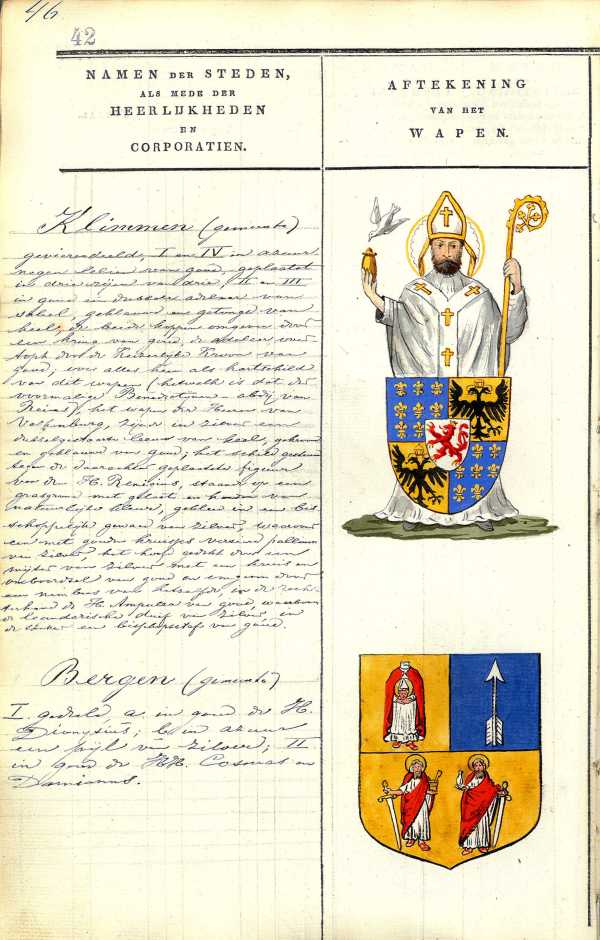 46
42
NAMEN DER STEDEN,
ALS MEDE DER
HEERLIJKHEDEN
EN
CORPORATIEN.
AFTEKENING
VAN HET
WAPEN.
Klimmen (gemeente)
gevierendeeld, I en IV in azuur
negen leliën van goud, geplaatst
in drie rijen van drie, II en III
in goud een dubbele adelaar van
sabel, gebekt en getongd van
keel, de beide koppen omgeven door
een kring van goud, de adelaar over
topt door de Keizerlijke Kroon van
goud, over alles heen als hartschild
van dit wapen (hetwelk is dat der
voormalige Benedictijner abdij van
Reims), het wapen der Heeren van
Valkenburg, zijnde in zilver een
dubbelgestaarte leeuw van keel, gekroond
en geklauwd van goud; het schild gesteund
door de daarachter geplaatste figuur
van den H. Remigius, staande op een
grasgrond met gelaat en handen van
natuurlijke kleur, gekleed in een bis
schoppelijk gewaad van zilver, waarover
een met gouden kruisjes versierd pallium
van zilver, het hoofd gedekt door een
mijter van zilver met een kruis en
omboordsel van goud en omgeven door
een nimbus van hetzelfde, in de rech
terhand de H. Ampulla van goud waarboven
de legendarische duif van zilver, in
de linker een bisschopsstaf van goud.
Bergen (gemeente)
I. gedeeld a. in goud de H.
Dionysius; b. in azuur
een pijl van zilver; II.
in goud de HH. Cosmas en
Damianus.